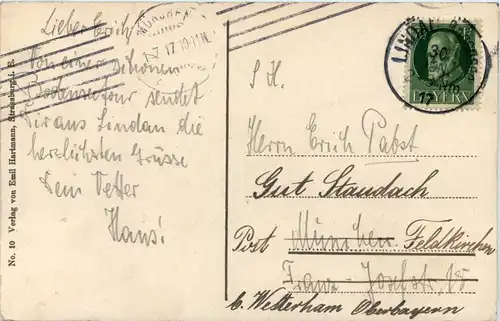 Lieber Erich!
Von einer schönen
Bodenseetour sendet
Dir aus Lindau die
herzlichsten Grüsse
Dein Vetter
Hans!
No. 10 Verlag von Emil Hartmann, Strassburg i. E.
MÜNCHEN
17
LINDAU
30
17
BAYERN
S. H.
Herrn Erich Pabst
Gut Staudach
Post München Feldkirchen
Franz-Josefstr. 18
b. Westerham Oberbayern